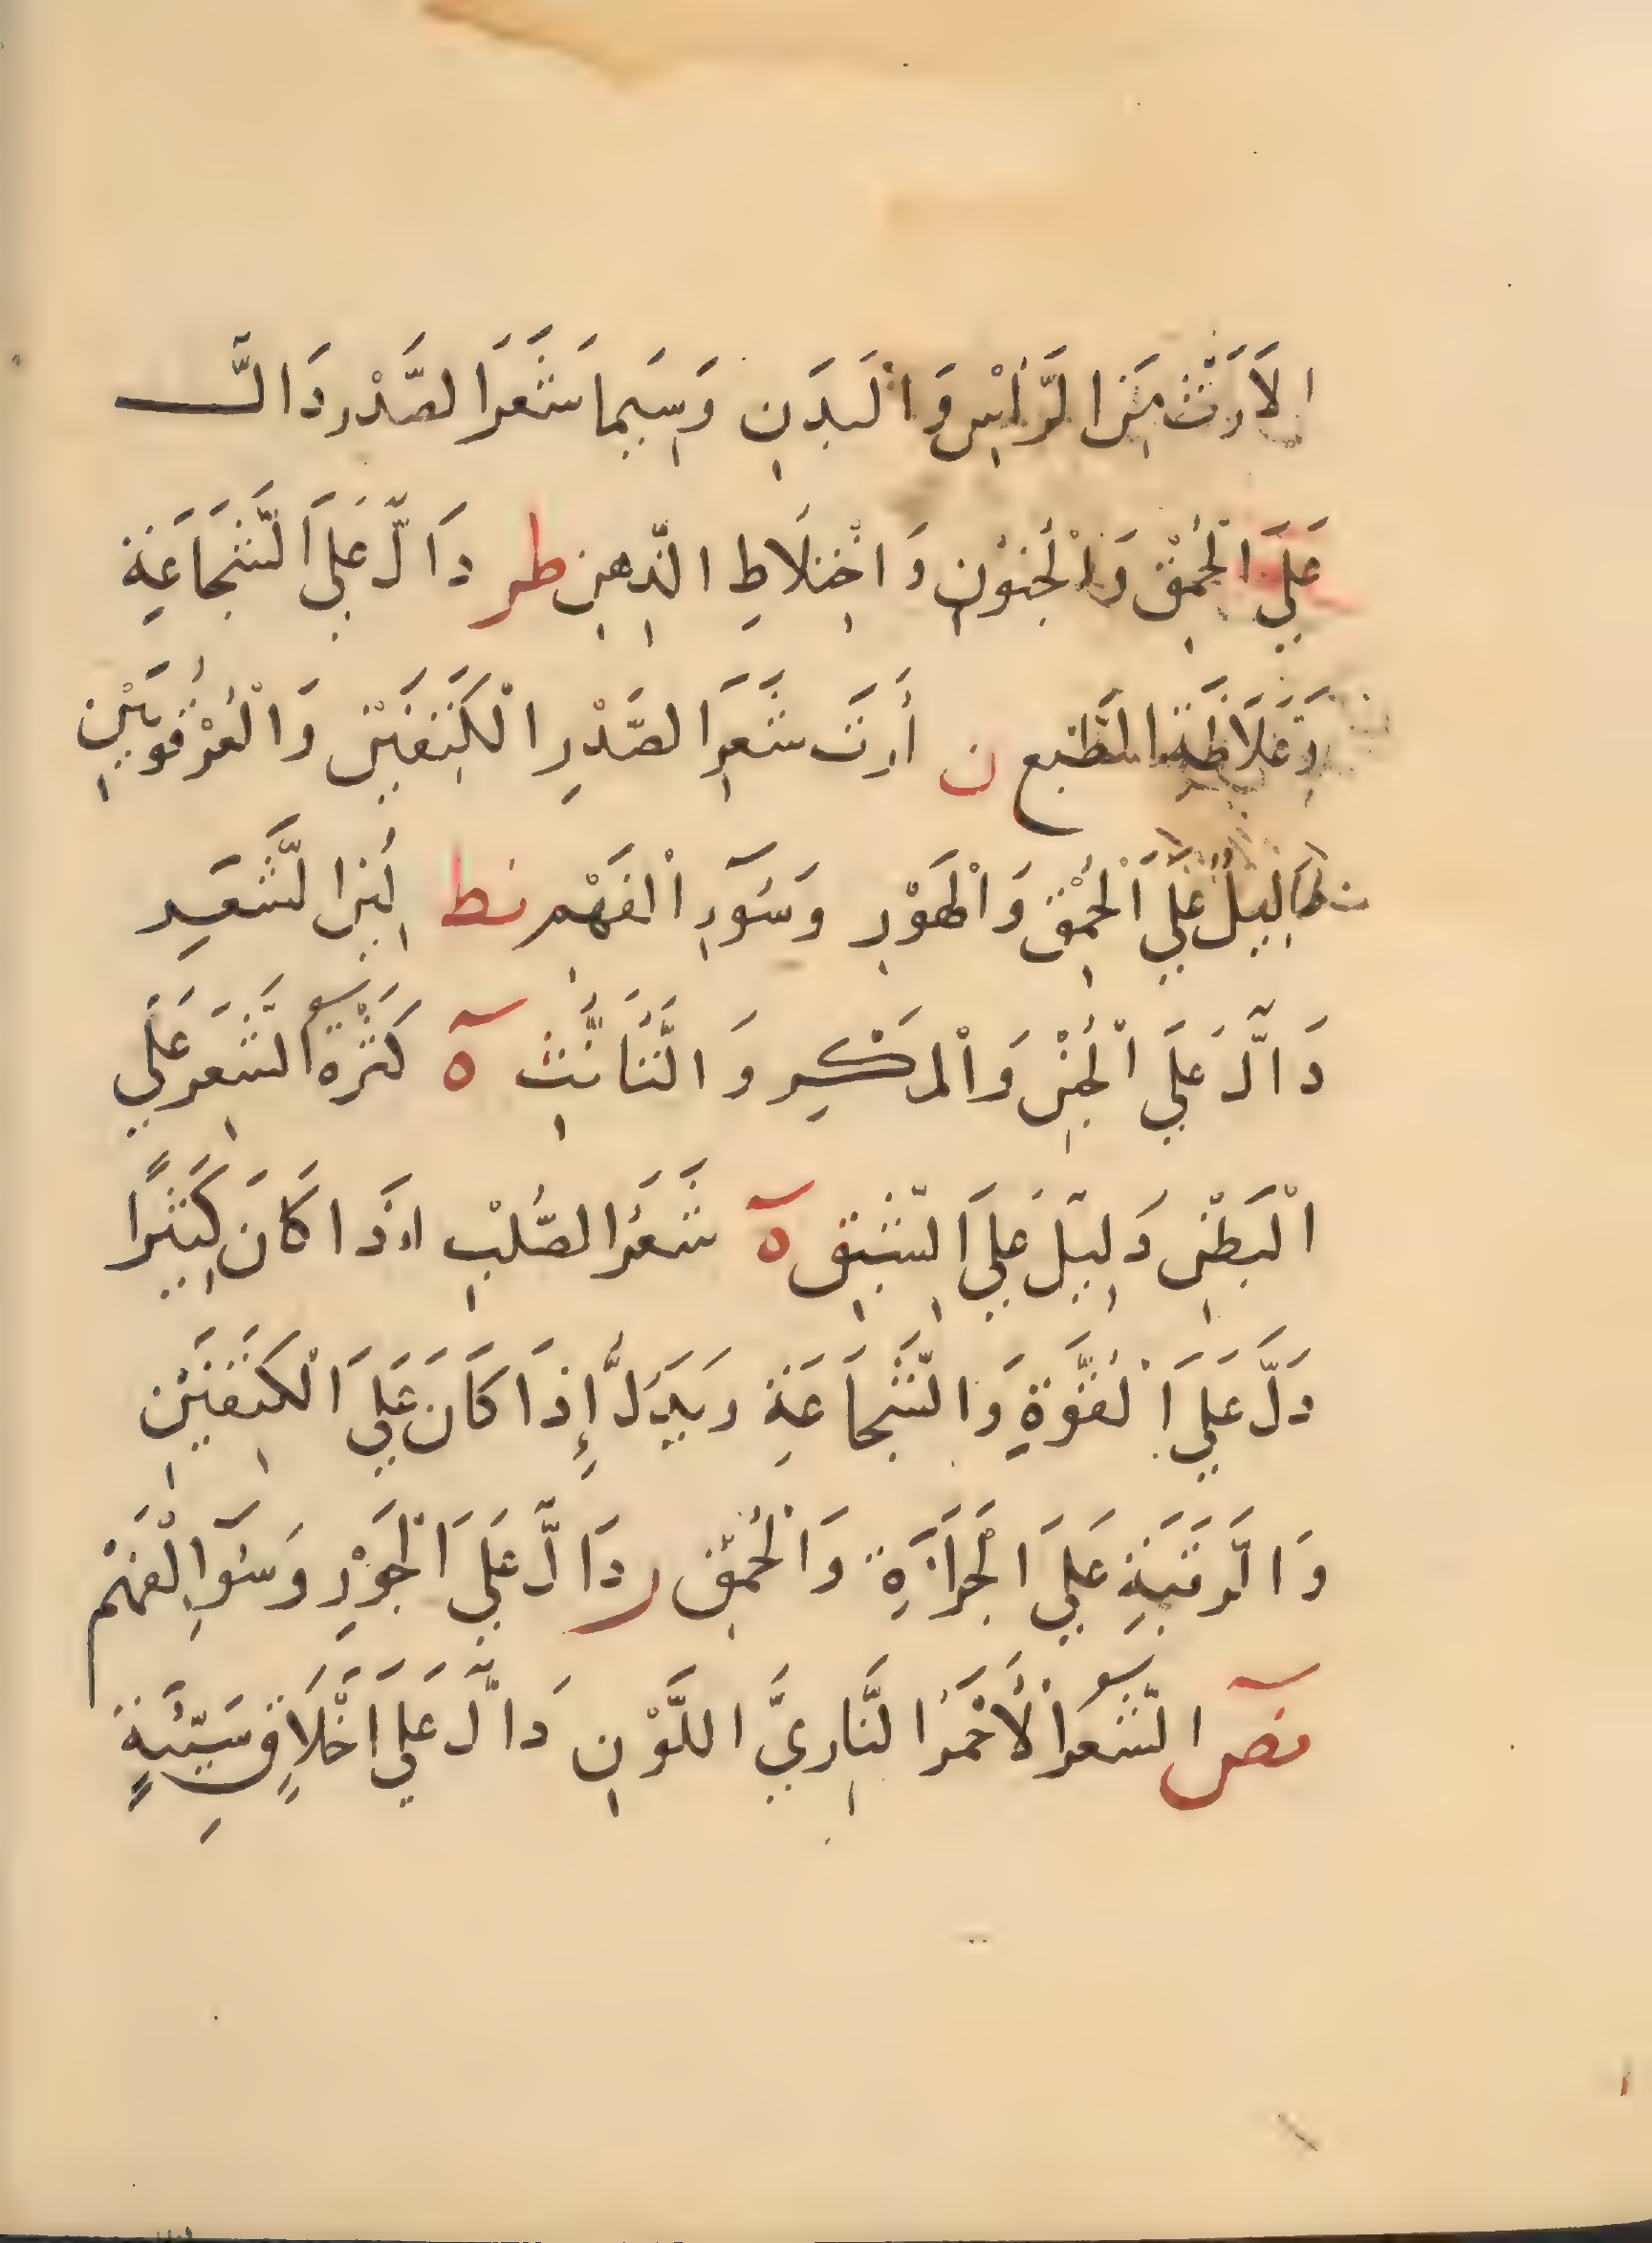 الأَرَثُّ مِنَ الرَّأْسِ وَالْبَدَنِ وَسِيَمَا شَعَرَ الصَّدْرِ دَالٌّ
عَلَى الْحُمْقِ وَالْجُنُوْنِ وَاخْتِلَاطِ الذِّهِنِ طر دَالٌّ عَلَى الشَّجَاعَةِ
وَغَلَاظَةِ الطَّبْعِ ن أَرَتَ شَعَرِ الصَّدْرِ الْكَتِفَيْنِ وَالْعُرْقُوبَيْنِ
دَلِيلٌ عَلَى الْحُمْقِ وَالْهَوْرِ وَسُوۤءِ الْفَهْمِ نط لِينَ الشَّعَرِ
دَالٌّ عَلَى الْجُبْنِ وَالْمَكْرِ وَالتَّأَنُّثِ ۤه كَثْرَةُ الشَّعَرِ عَلَى
الْبَطْنِ دَلِيْلٌ عَلَى الشَّبَقِ ۤه شَعَرُ الصُّلْبِ اذَا كَانَ كَثِيْرًا
دَلَّ عَلَى الْقُوَّةِ وَالشَّجَاعَةِ وَيَدُلُّ إِذَا كَانَ عَلَى الْكَتِفَيْنِ
وَالرَّقَبَةِ عَلَى الْجَرَاءَةِ وَالْحُمْقِ ر دَالٌّ عَلَى الْجَوْرِ وَسُوۤءِ الْفَهْمِ
نصۤ الشَّعَرُ الْأَحْمَرُ النَّارِيُّ اللَّوْنِ دَالٌّ عَلَى اَخْلَاقٍ سَيِّئَةٍ